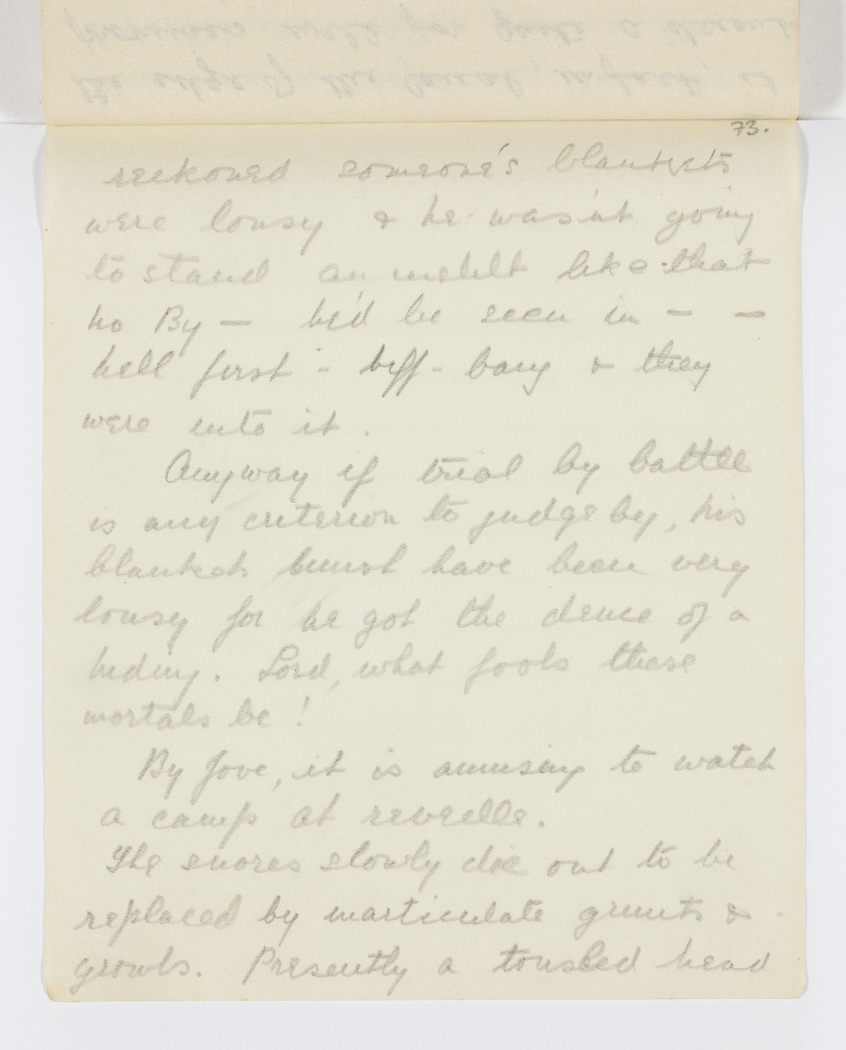 73.
reckoned someone's blankets
were lousy & he wasn't going
to stand an insult like that
no By — he'd be seen in — —
hell first - biff - bang & they
were into it.
Anyway if trial by battle
is any criterion to judge by, his
blankets must have been very
lousy for he got the deuce of a
hiding. Lord, what fools these
mortals be!
By Jove, it is amusing to watch
a camp at reveille.
The snores slowly die out to be
replaced by inarticulate grunts &
growls. Presently a tousled head